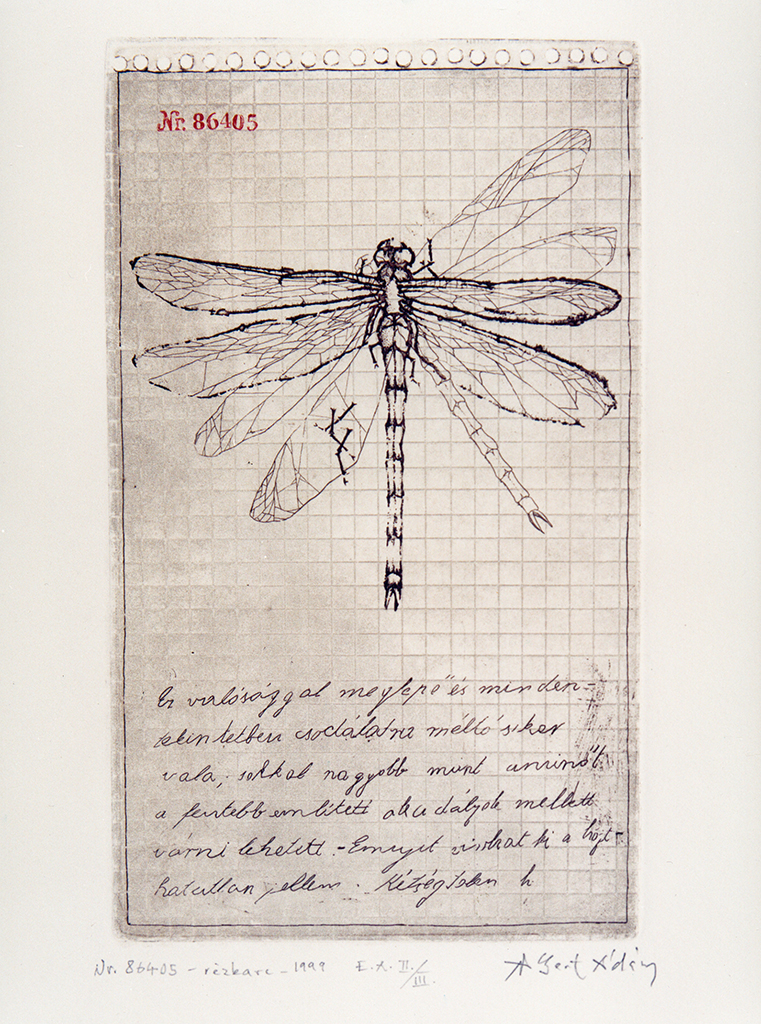 Nr. 86405
Ez valósággal meglepő és minden-
tekintetben csodálatra méltó siker
vala, sokkal nagyobb mint aminőt
a fentebb említett akadályok mellett
várni lehetett. - Ennyit vívhat ki a hajt-
hatatlan jellem. Kétségtelen h
Nr. 86405 - rézkarc - 1999 E.A. II./III.
Albert Ádám